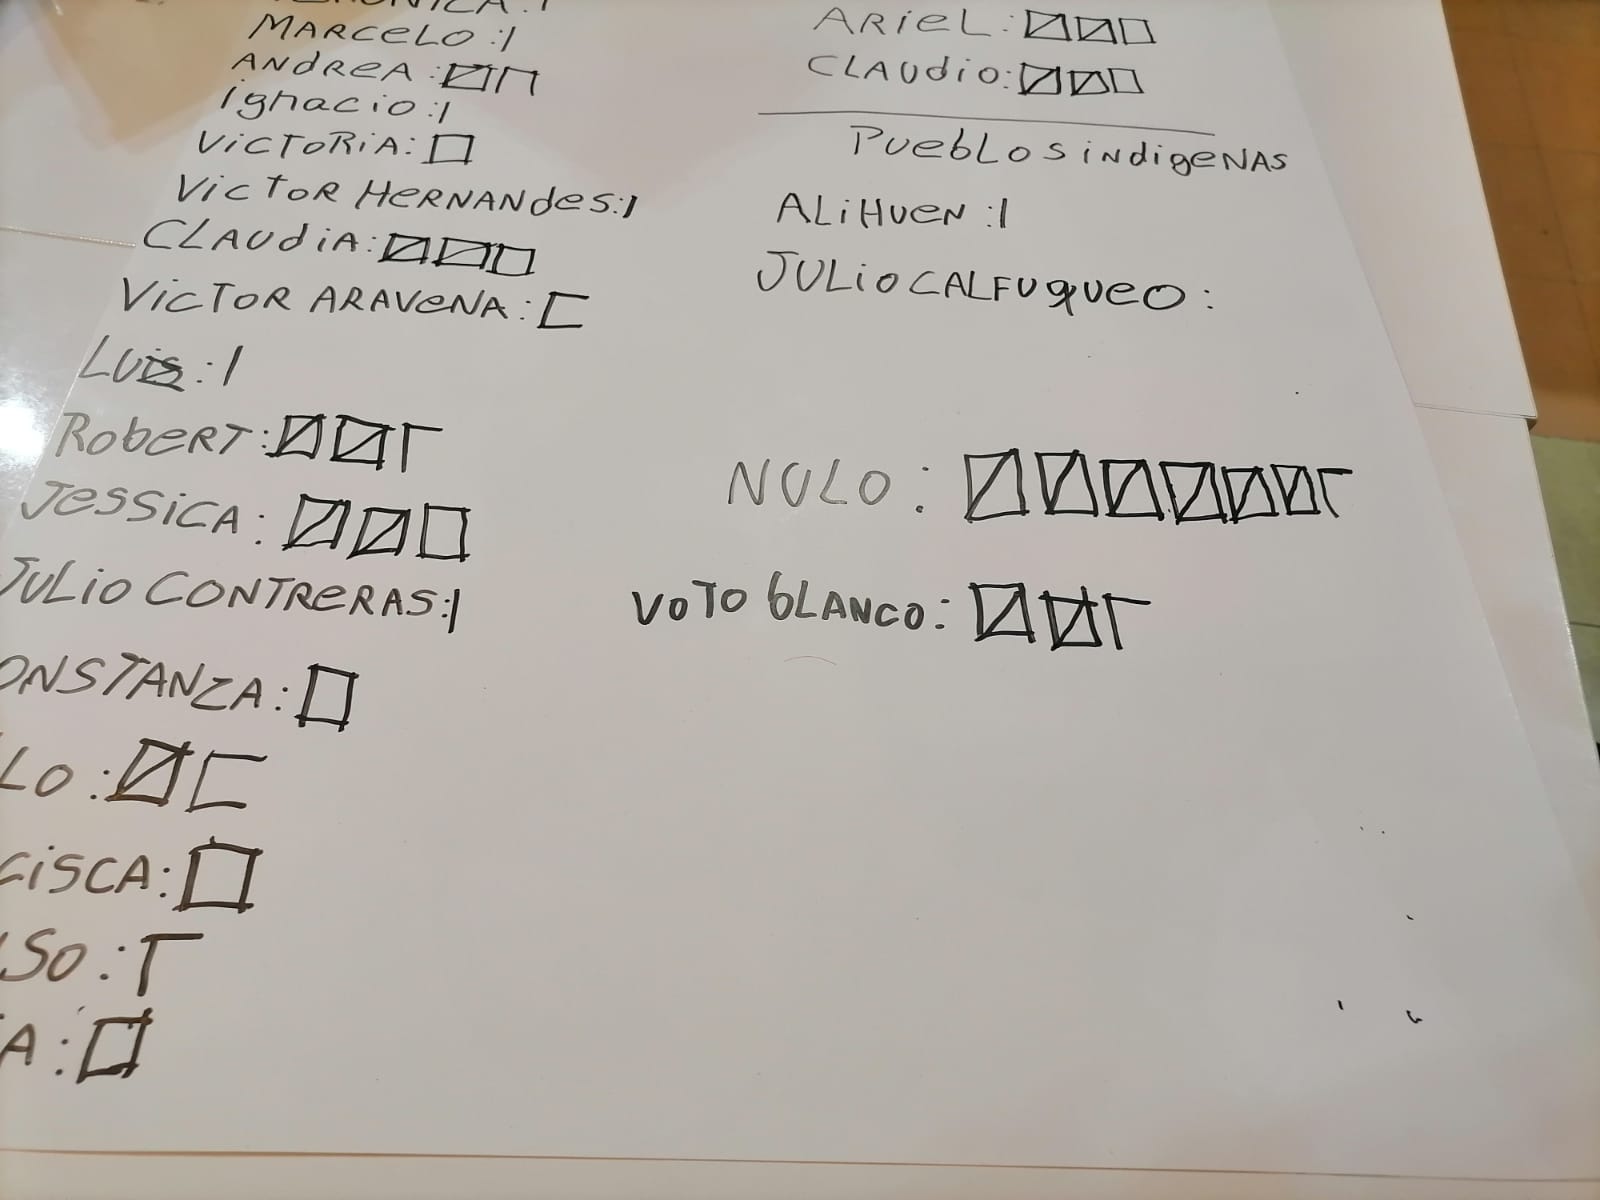 MARCELO :|
ANdReA :
ignacio :|
VicToRiA:
VicToR HeRNANdes:|
CLAUdiA:
VicToR ARAVeNA:
LUis :|
RobeRT:
JessiCA:
JULio CONTReRAS:|
ONSTANZA:
LO :
CiSCA:
SO :
A :
ARieL:
CLAUdio:
PuebLos indigeNAS
ALiHueN :|
JULio CALFUqueo :
NULO :
VoTo bLANCO: